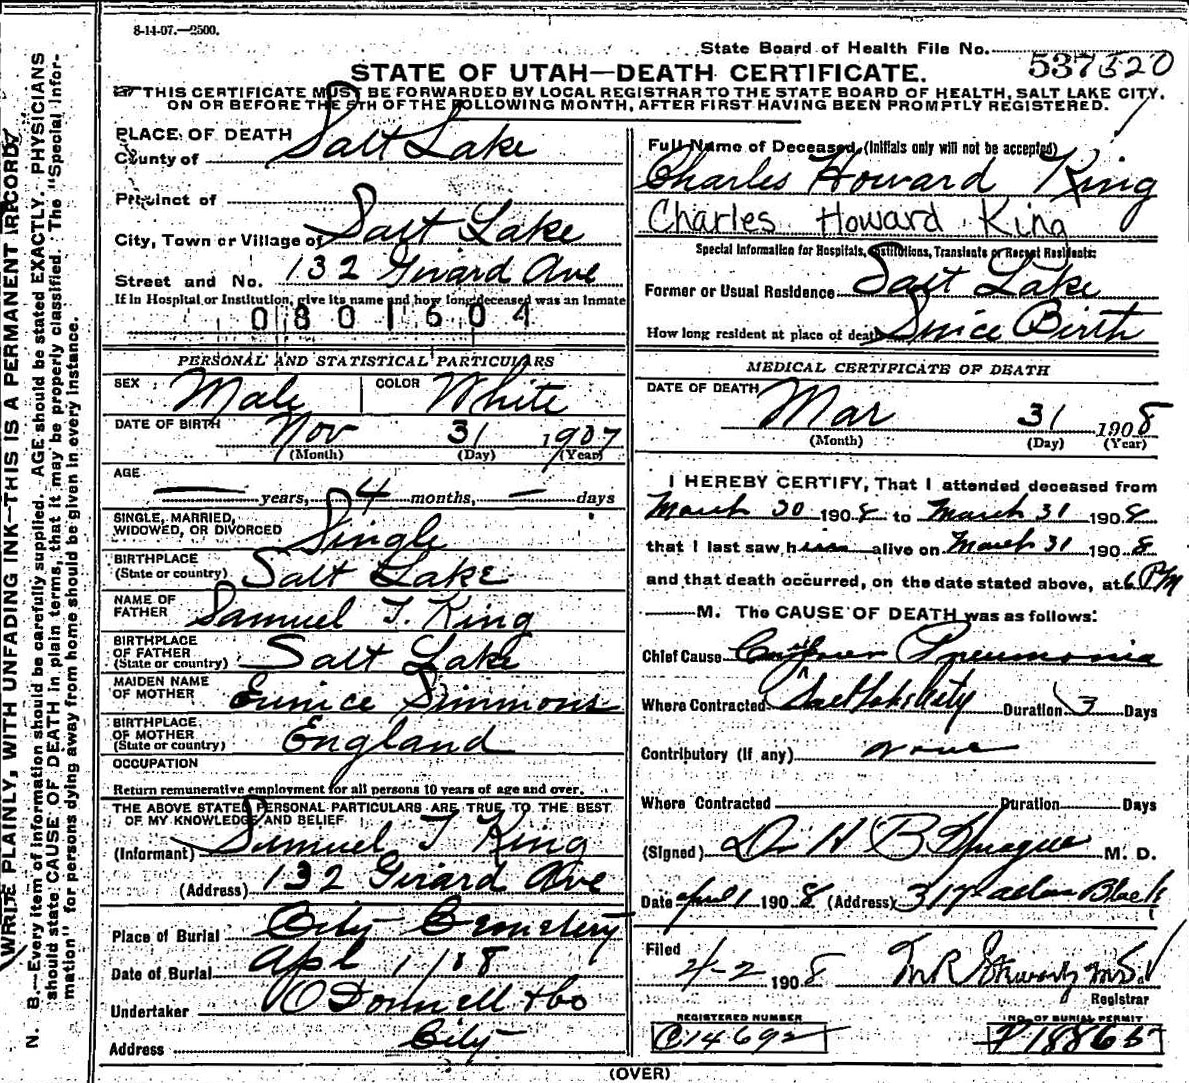 8-14-07.—2500.
State Board of Health File No.
537 520
STATE OF UTAH—DEATH CERTIFICATE.
THIS CERTIFICATE MUST BE FORWARDED BY LOCAL REGISTRAR TO THE STATE BOARD OF HEALTH, SALT LAKE CITY,
ON OR BEFORE THE 5TH OF THE FOLLOWING MONTH, AFTER FIRST HAVING BEEN PROMPTLY REGISTERED.
WRITE PLAINLY, WITH UNFADING INK—THIS IS A PERMANENT RECORD
N. B.—Every item of information should be carefully supplied. AGE should be stated EXACTLY. PHYSICIANS
should state CAUSE OF DEATH in plain terms, that it may be properly classified. The "Special Infor-
mation" for persons dying away from home should be given in every instance.
PLACE OF DEATH
County of Salt Lake
Precinct of
City, Town or Village of Salt Lake
Street and No. 132 Girard Ave
If in Hospital or Institution, give its name and how long deceased was an inmate
0801604
PERSONAL AND STATISTICAL PARTICULARS
SEX Male COLOR White
DATE OF BIRTH Nov 31 1907
(Month) (Day) (Year)
AGE
— years, 4 months, — days
SINGLE, MARRIED,
WIDOWED, OR DIVORCED Single
BIRTHPLACE
(State or country) Salt Lake
NAME OF
FATHER Samuel T. King
BIRTHPLACE
OF FATHER
(State or country) Salt Lake
MAIDEN NAME
OF MOTHER Eunice Simmons
BIRTHPLACE
OF MOTHER
(State or country) England
OCCUPATION
Return remunerative employment for all persons 10 years of age and over.
THE ABOVE STATED PERSONAL PARTICULARS ARE TRUE TO THE BEST
OF MY KNOWLEDGE AND BELIEF
(Informant) Samuel T King
(Address) 132 Girard Ave
Place of Burial City Cemetery
Date of Burial Apl 1/08
Undertaker O'Donnell & Co
Address City
Full Name of Deceased (Initials only will not be accepted)
Charles Howard King
Charles Howard King
Special Information for Hospitals, Institutions, Transients or Recent Residents:
Former or Usual Residence Salt Lake
How long resident at place of death Since Birth
MEDICAL CERTIFICATE OF DEATH
DATE OF DEATH Mar 31 1908
(Month) (Day) (Year)
I HEREBY CERTIFY, That I attended deceased from
March 30 1908 to March 31 1908
that I last saw him alive on March 31 1908
and that death occurred, on the date stated above, at 6 PM
M. The CAUSE OF DEATH was as follows:
Chief Cause Pneumonia
Where Contracted Salt Lake City Duration 3 Days
Contributory (if any) none
Where Contracted Duration Days
(Signed) Dr H B Sprague M. D.
Date April 1 1908 (Address) 317
Filed
4-2 1908
Registrar
REGISTERED NUMBER
C14692
NO. OF BURIAL PERMIT
(OVER)